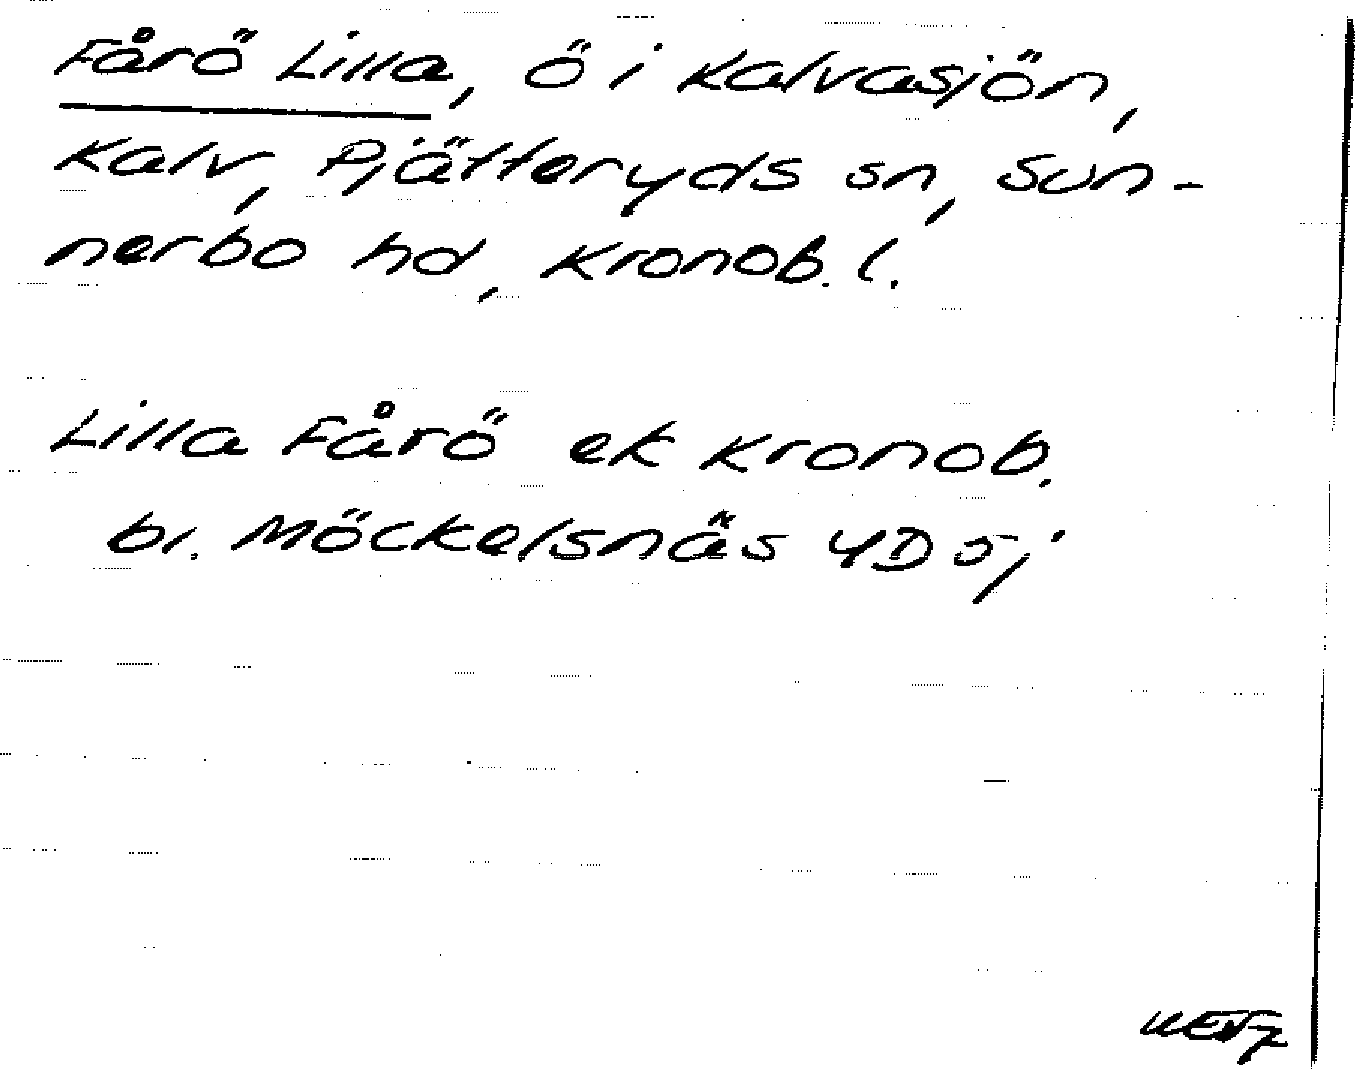 Fårö Lilla, ö i Kalvasjön,
Kalv, Pjätteryds sn, Sun-
nerbo hd, Kronob. l.
Lilla Fårö ek Kronob.
bl. Möckelsnäs 4D5j